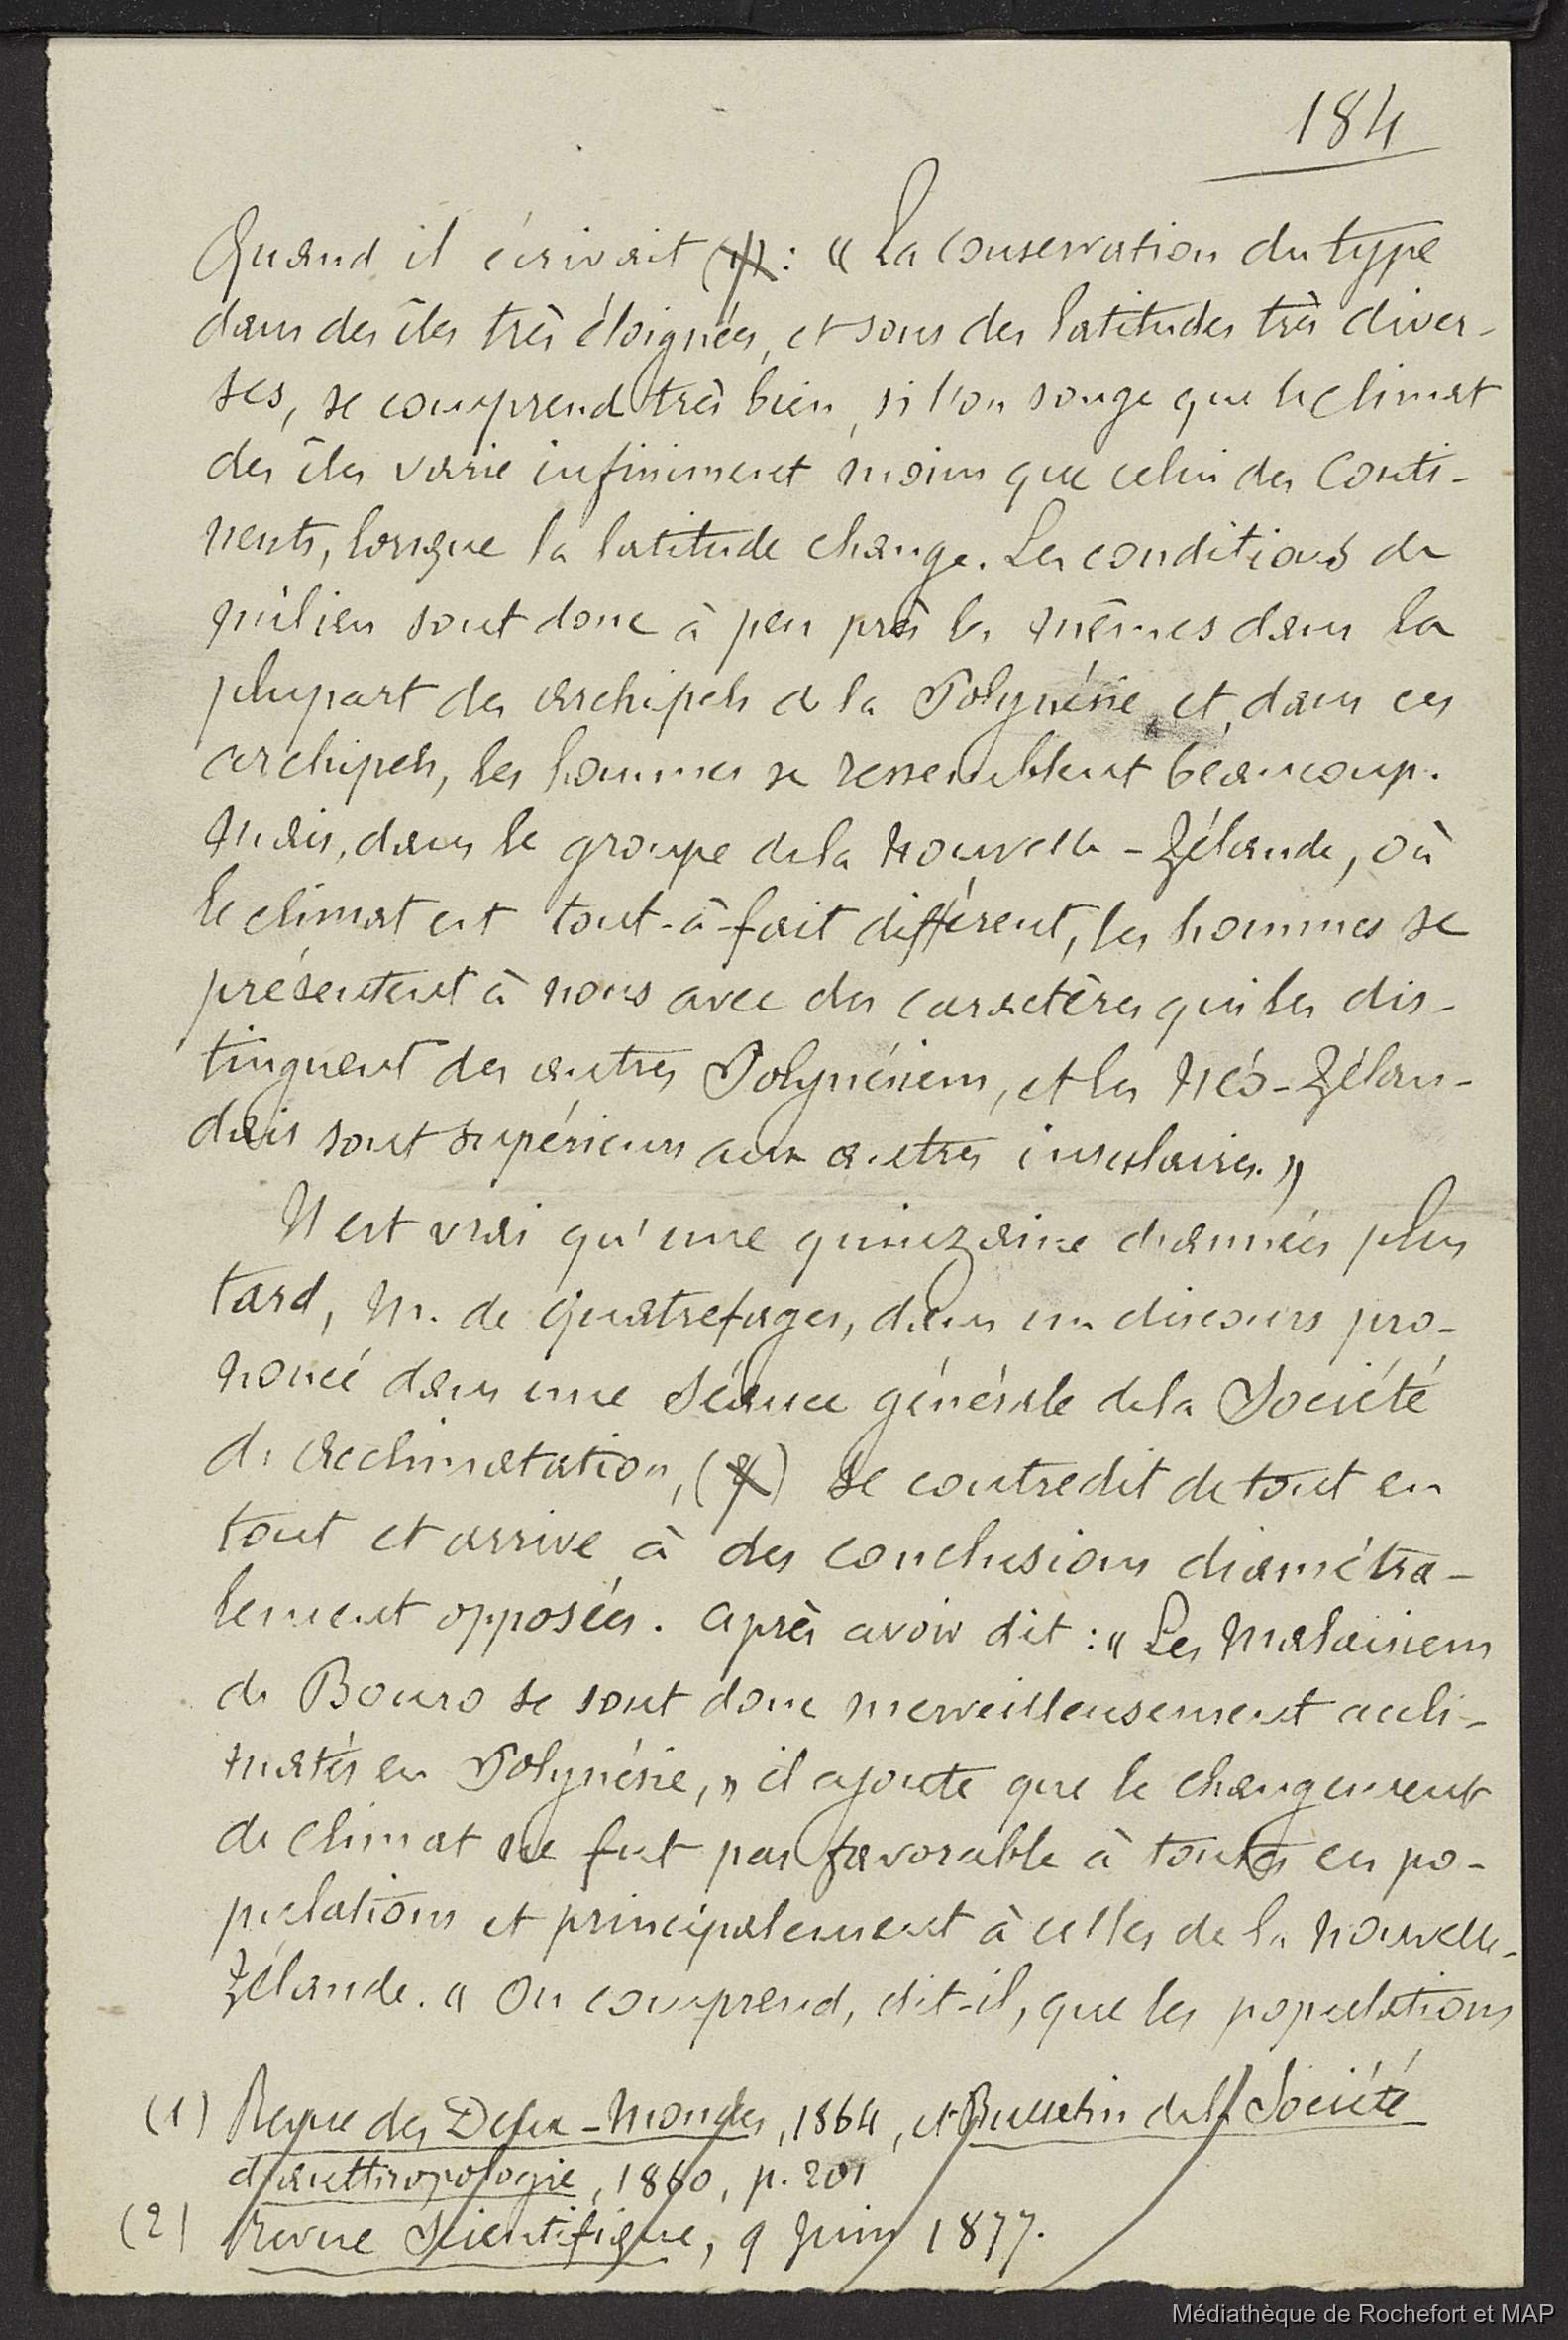 184
Quand il écrivait (1) : « La conservation du type
dans des îles très éloignées, et sous des latitudes très diver-
ses, se comprend très bien, si l'on songe que le climat
des îles varie infiniment moins que celui des Conti-
nents, lorsque la latitude change. Les conditions de
milieu sont donc à peu près les mêmes dans la
plupart des archipels de la Polynésie et, dans ces
archipels, les hommes se ressemblent beaucoup.
Mais, dans le groupe de la Nouvelle-Zélande, où
le climat est tout-à-fait différent, les hommes se
présentent à nous avec des caractères qui les dis-
tinguent des autres Polynésiens, et les Néo-Zélan-
dais sont supérieurs aux autres insulaires. »
Il est vrai qu'une quinzaine d'années plus
tard, M. de Quatrefages, dans un discours pro-
noncé dans une séance générale de la Société
d'acclimatation, (2) se contredit de tout en
tout et arrive à des conclusions diamétra-
lement opposées. Après avoir dit : « Les Malaisiens
de Bouro se sont donc merveilleusement accli-
matés en Polynésie, » il ajoute que le changement
de climat ne fut pas favorable à toutes ces po-
pulations et principalement à celles de la Nouvelle-
Zélande. « On comprend, dit-il, que les populations
(1) Revue des Deux-Mondes, 1864, et Bulletin de la Société
d'anthropologie, 1860, p. 201
(2) Revue Scientifique, 9 Juin 1877.
Médiathèque de Rochefort et MAP